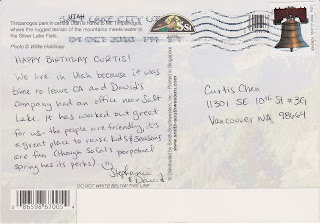 UTAH
Timpanogos park in central Utah is home to Mt. Timpanogos,
where the rugged terrain of the mountains meets water in
the Silver Lake Flats.
Photo © Willie Holdman
SALT LAKE CITY UT
04 OCT 2010 PM
HAPPY BIRTHDAY CURTIS!
We live in Utah because it was
time to leave CA and David's
Company had an office near Salt
Lake. It has worked out great
for us - the people are friendly, it's
a great place to raise kids & seasons
are fun (though SoCal's perpetual
spring has its perks).
Stephanie
& David
Curtis Chen
11301 SE 10th St #3G
Vancouver WA 98664
www.smith-southwestern.com
Distributed by Smith-Southwestern
DO NOT WRITE BELOW THIS LINE
0 86598 67005 4